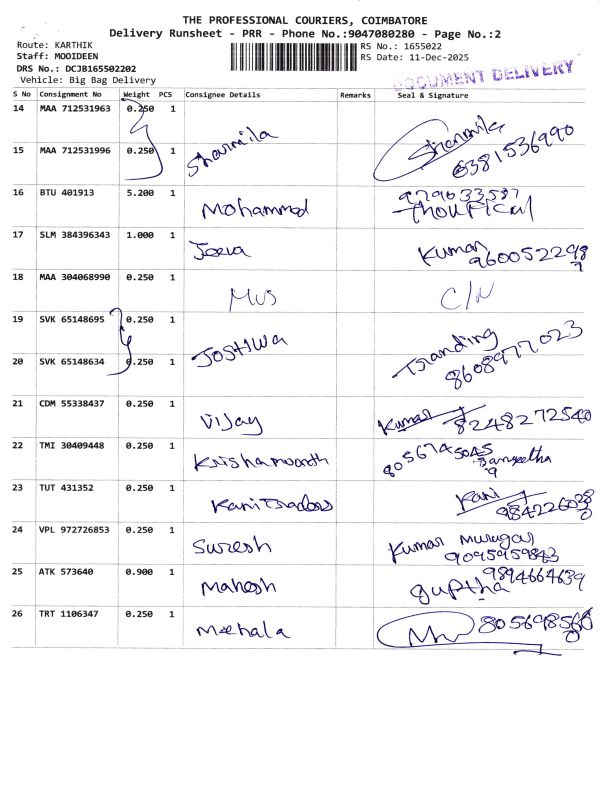 THE PROFESSIONAL COURIERS, COIMBATORE
Delivery Runsheet - PRR - Phone No.:9047080280 - Page No.:2
Route: KARTHIK
Staff: MOOIDEEN
DRS No.: DCJB165502202
Vehicle: Big Bag Delivery
RS No.: 1655022
RS Date: 11-Dec-2025
DOCUMENT DELIVERY
S No Consignment No Weight PCS Consignee Details Remarks Seal & Signature
14 MAA 712531963 0.250 1
15 MAA 712531996 0.250 1 Sharmila Sharmila 6381536990
16 BTU 401913 5.200 1 Mohammed 979033587
17 SLM 384396343 1.000 1 Jeeva Kumar 9600522987
18 MAA 304068990 0.250 1 C/N
19 SVK 65148695 0.250 1
20 SVK 65148634 0.250 1 8608977023
21 CDM 55338437 0.250 1 Vijay Kumar 8248272540
22 TMI 30409448 0.250 1 8056745045 Sangeetha
23 TUT 431352 0.250 1 Kani
24 VPL 972726853 0.250 1 Suresh Kumar Murugas 9095959843
25 ATK 573640 0.900 1 Mahesh guptha 9894664639
26 TRT 1106347 0.250 1 Mekala